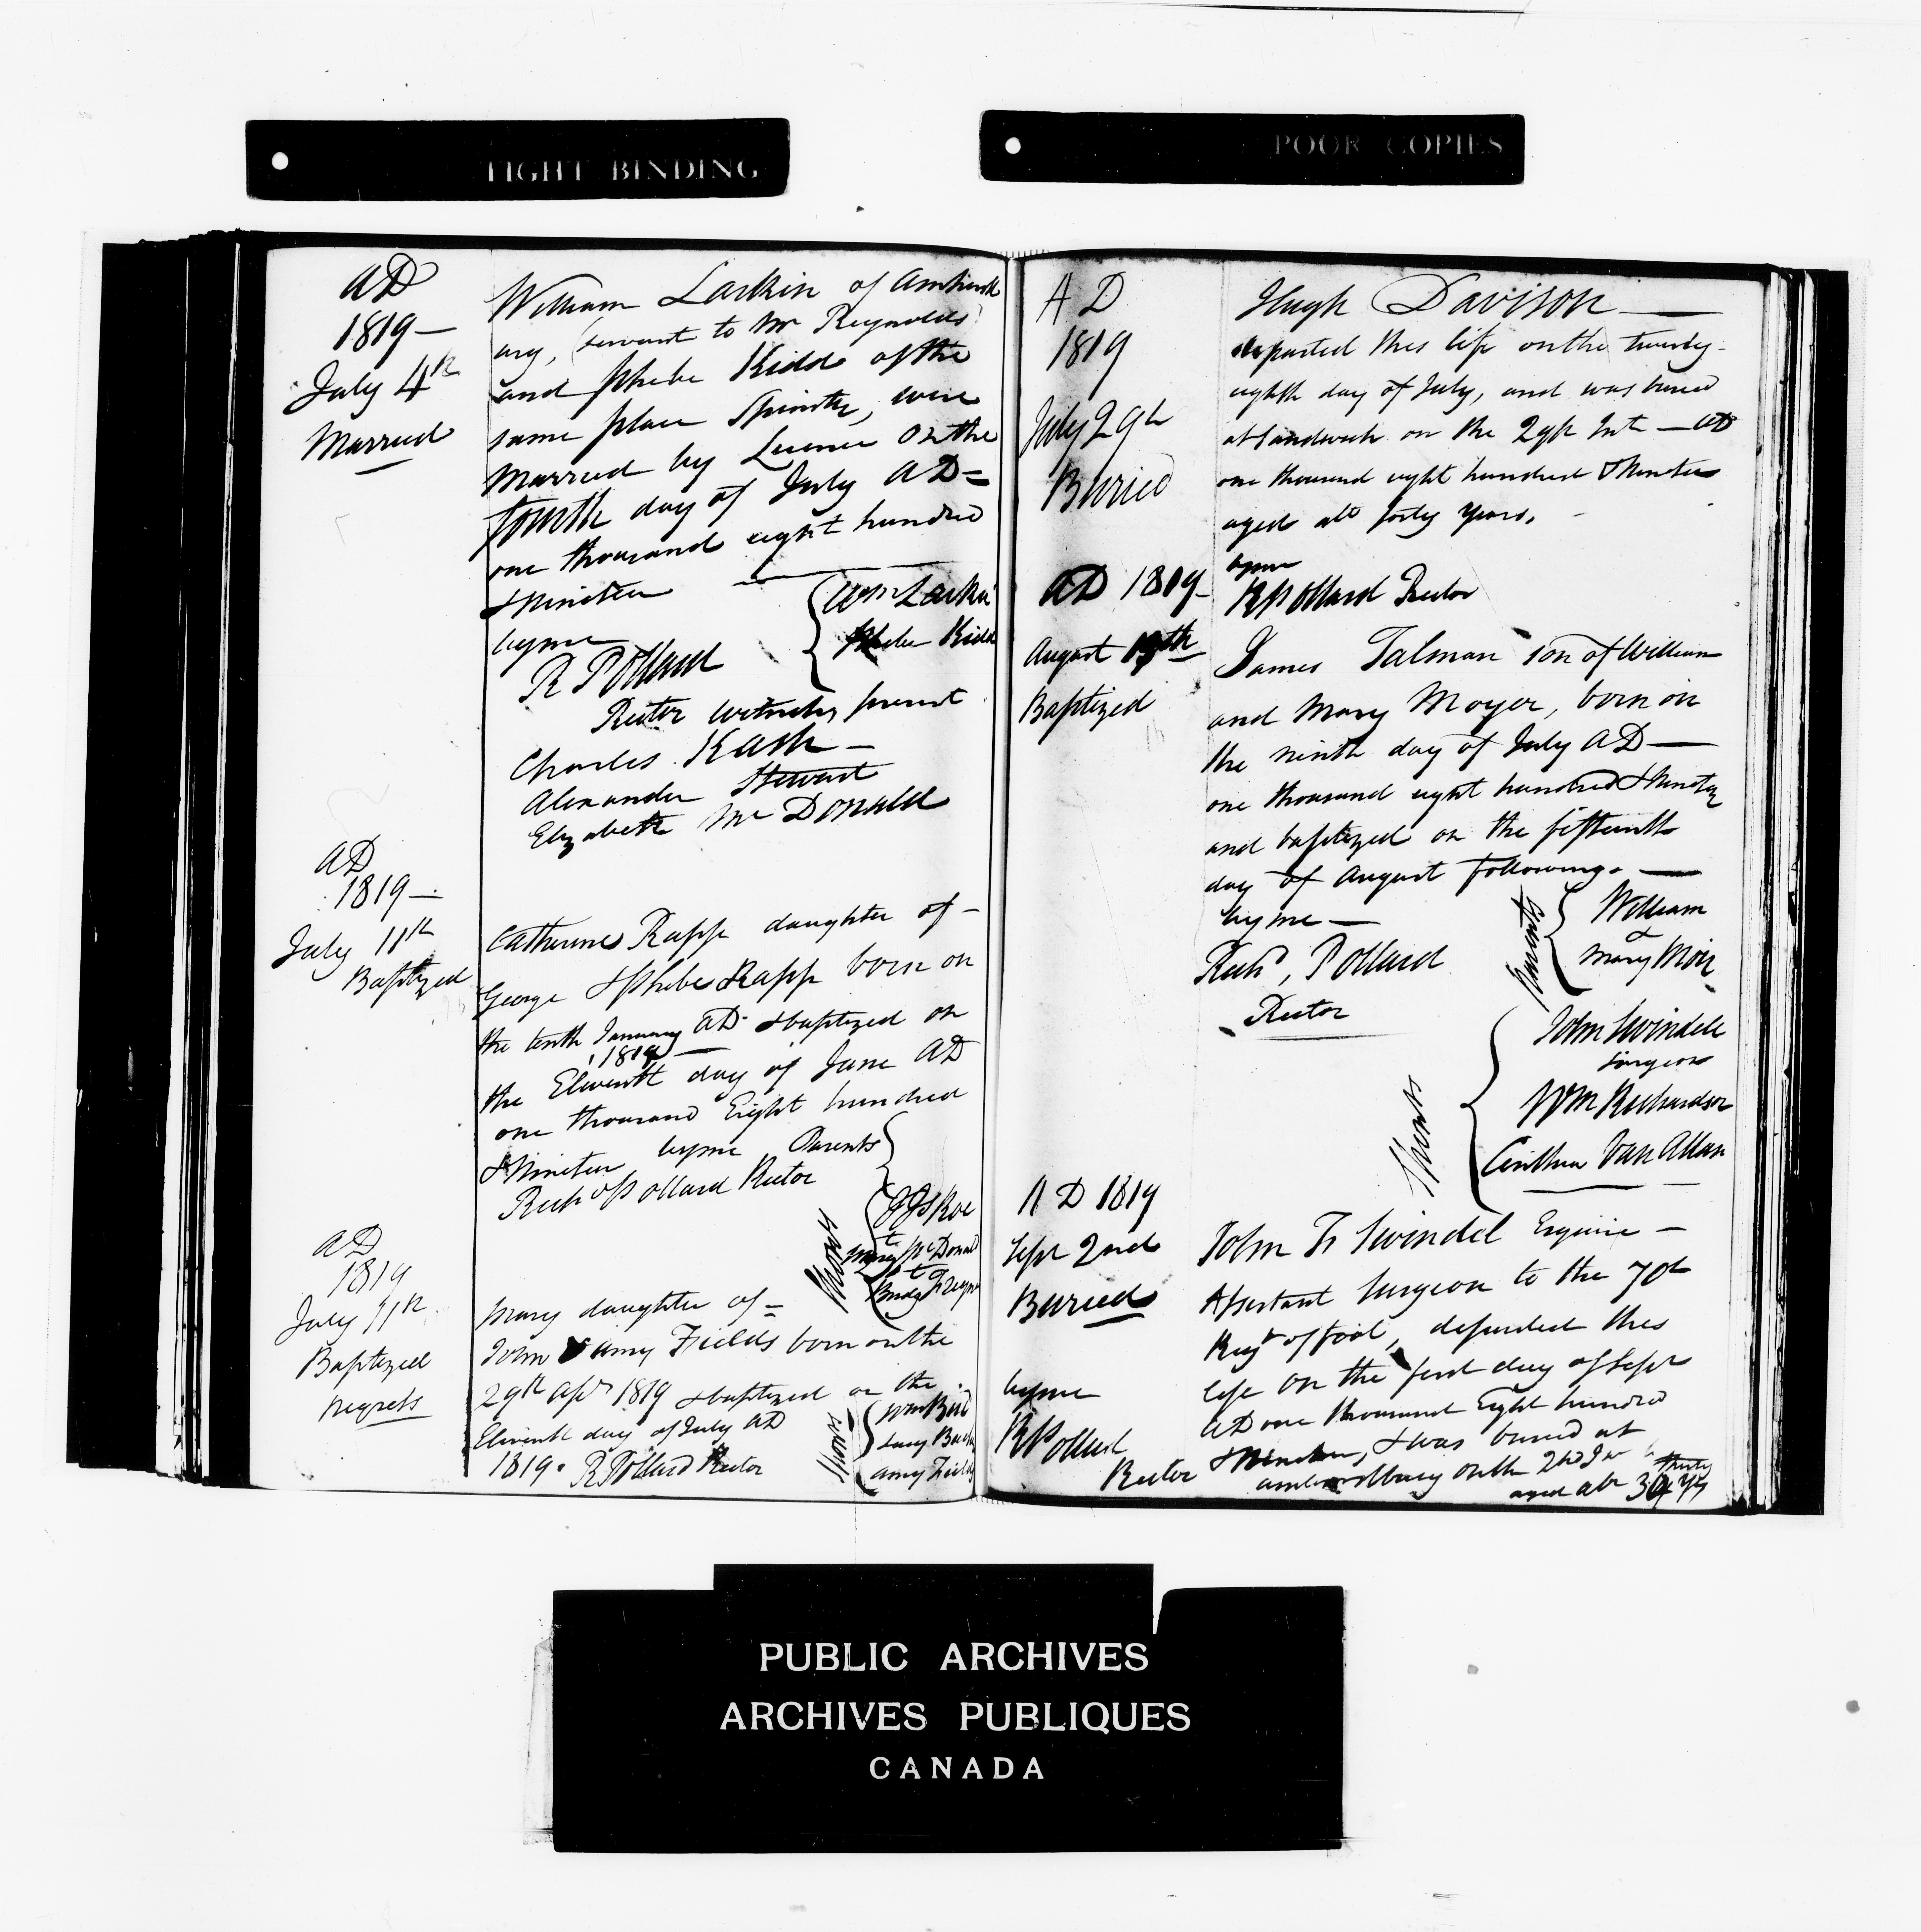 TIGHT BINDING
POOR COPIES
AD
1819 —
July 4th
Married
William Larkin of Amherst
ury, (servant to Mr Reynolds)
and Phebe Kidd of the
same place Spinster, were
Married by Licence on the
fourth day of July AD =
one thousand eight hundred
& nineteen
by me
R Pollard
Rector witnesses present
Wm Larkin
Phebe Kidd
Charles Kash —
Alexander Stewart
Elizabeth Mc Donald
AD
1819 —
July 11th
Baptized
Catherine Rapp daughter of —
George & Phebe Rapp born on
the tenth January AD & baptized on
1819 —
the Eleventh day of June AD
one thousand Eight hundred
& Nineteen by me Parents
Richd Pollard Rector
Sponsors
Roe
Mary McDonald
AD
1819
July 11th
Baptized
negroes
Mary daughter of =
John & amy Fields born on the
29th Apr 1819 & baptized on the
Eleventh day of July AD
1819. R Pollard Rector
Sponsors
Wm Bird
Lucy
amy Fields
A D
1819
July 29th
Buried
Hugh Davison —
departed this life on the twenty
eighth day of July, and was buried
at Sandwich on the 29th Int — AD
one thousand eight hundred & Nineteen
aged abt forty years,
by me
R Pollard Rector
AD 1819 —
August 15th
Baptized
James Talman son of William
and Mary Moyer, born on
the ninth day of July AD —
one thousand eight hundred & Nineteen
and baptized on the fifteenth
day of August following. —
by me —
Richd, Pollard
Rector
Parents
William
&
Mary Moir
Sponsors
John Swindell
surgeon
Wm Richardson
Cinthia Van Allan
A D 1819
Sept 2nd
Buried
by me
R Pollard
Rector
John F Swindel Esquire —
Assistant Surgeon to the 70th
Regt of foot, departed this
life on the first day of Sept
AD one thousand Eight hundred
& Nineteen, & was buried at
on the 2nd
aged abt 30 yrs
Thirty
PUBLIC ARCHIVES
ARCHIVES PUBLIQUES
CANADA